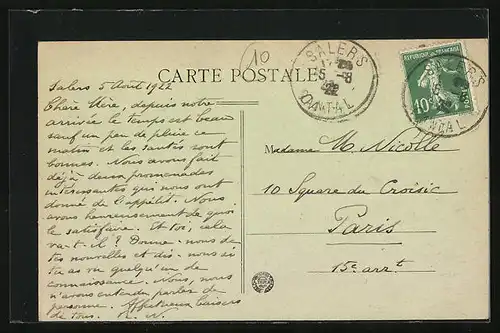 10
SALERS
5-8
22
CANTAL
CARTE POSTALE
REPUBLIQUE FRANÇAISE
10c
POSTES
SALERS
CANTAL
Salers 5 Août 1922
Chère Mère, depuis notre
arrivée le temps est beau
sauf un peu de pluie ce
matin et les santés sont
bonnes. Nous avons fait
déjà deux promenades
intéressantes qui nous ont
donné de l'appétit. Nous
avons heureusement de quoi
le satisfaire. Et toi, cela
va-t-il ? Donne-nous de
tes nouvelles et dis-nous si
tu as vu quelqu'un de
connaissance. Nous, nous
n'avons entendu parler de
personne. Affectueux baisers
de tous.
Madame M. Nicolle
10 Square du Croisic
Paris
15e arrt